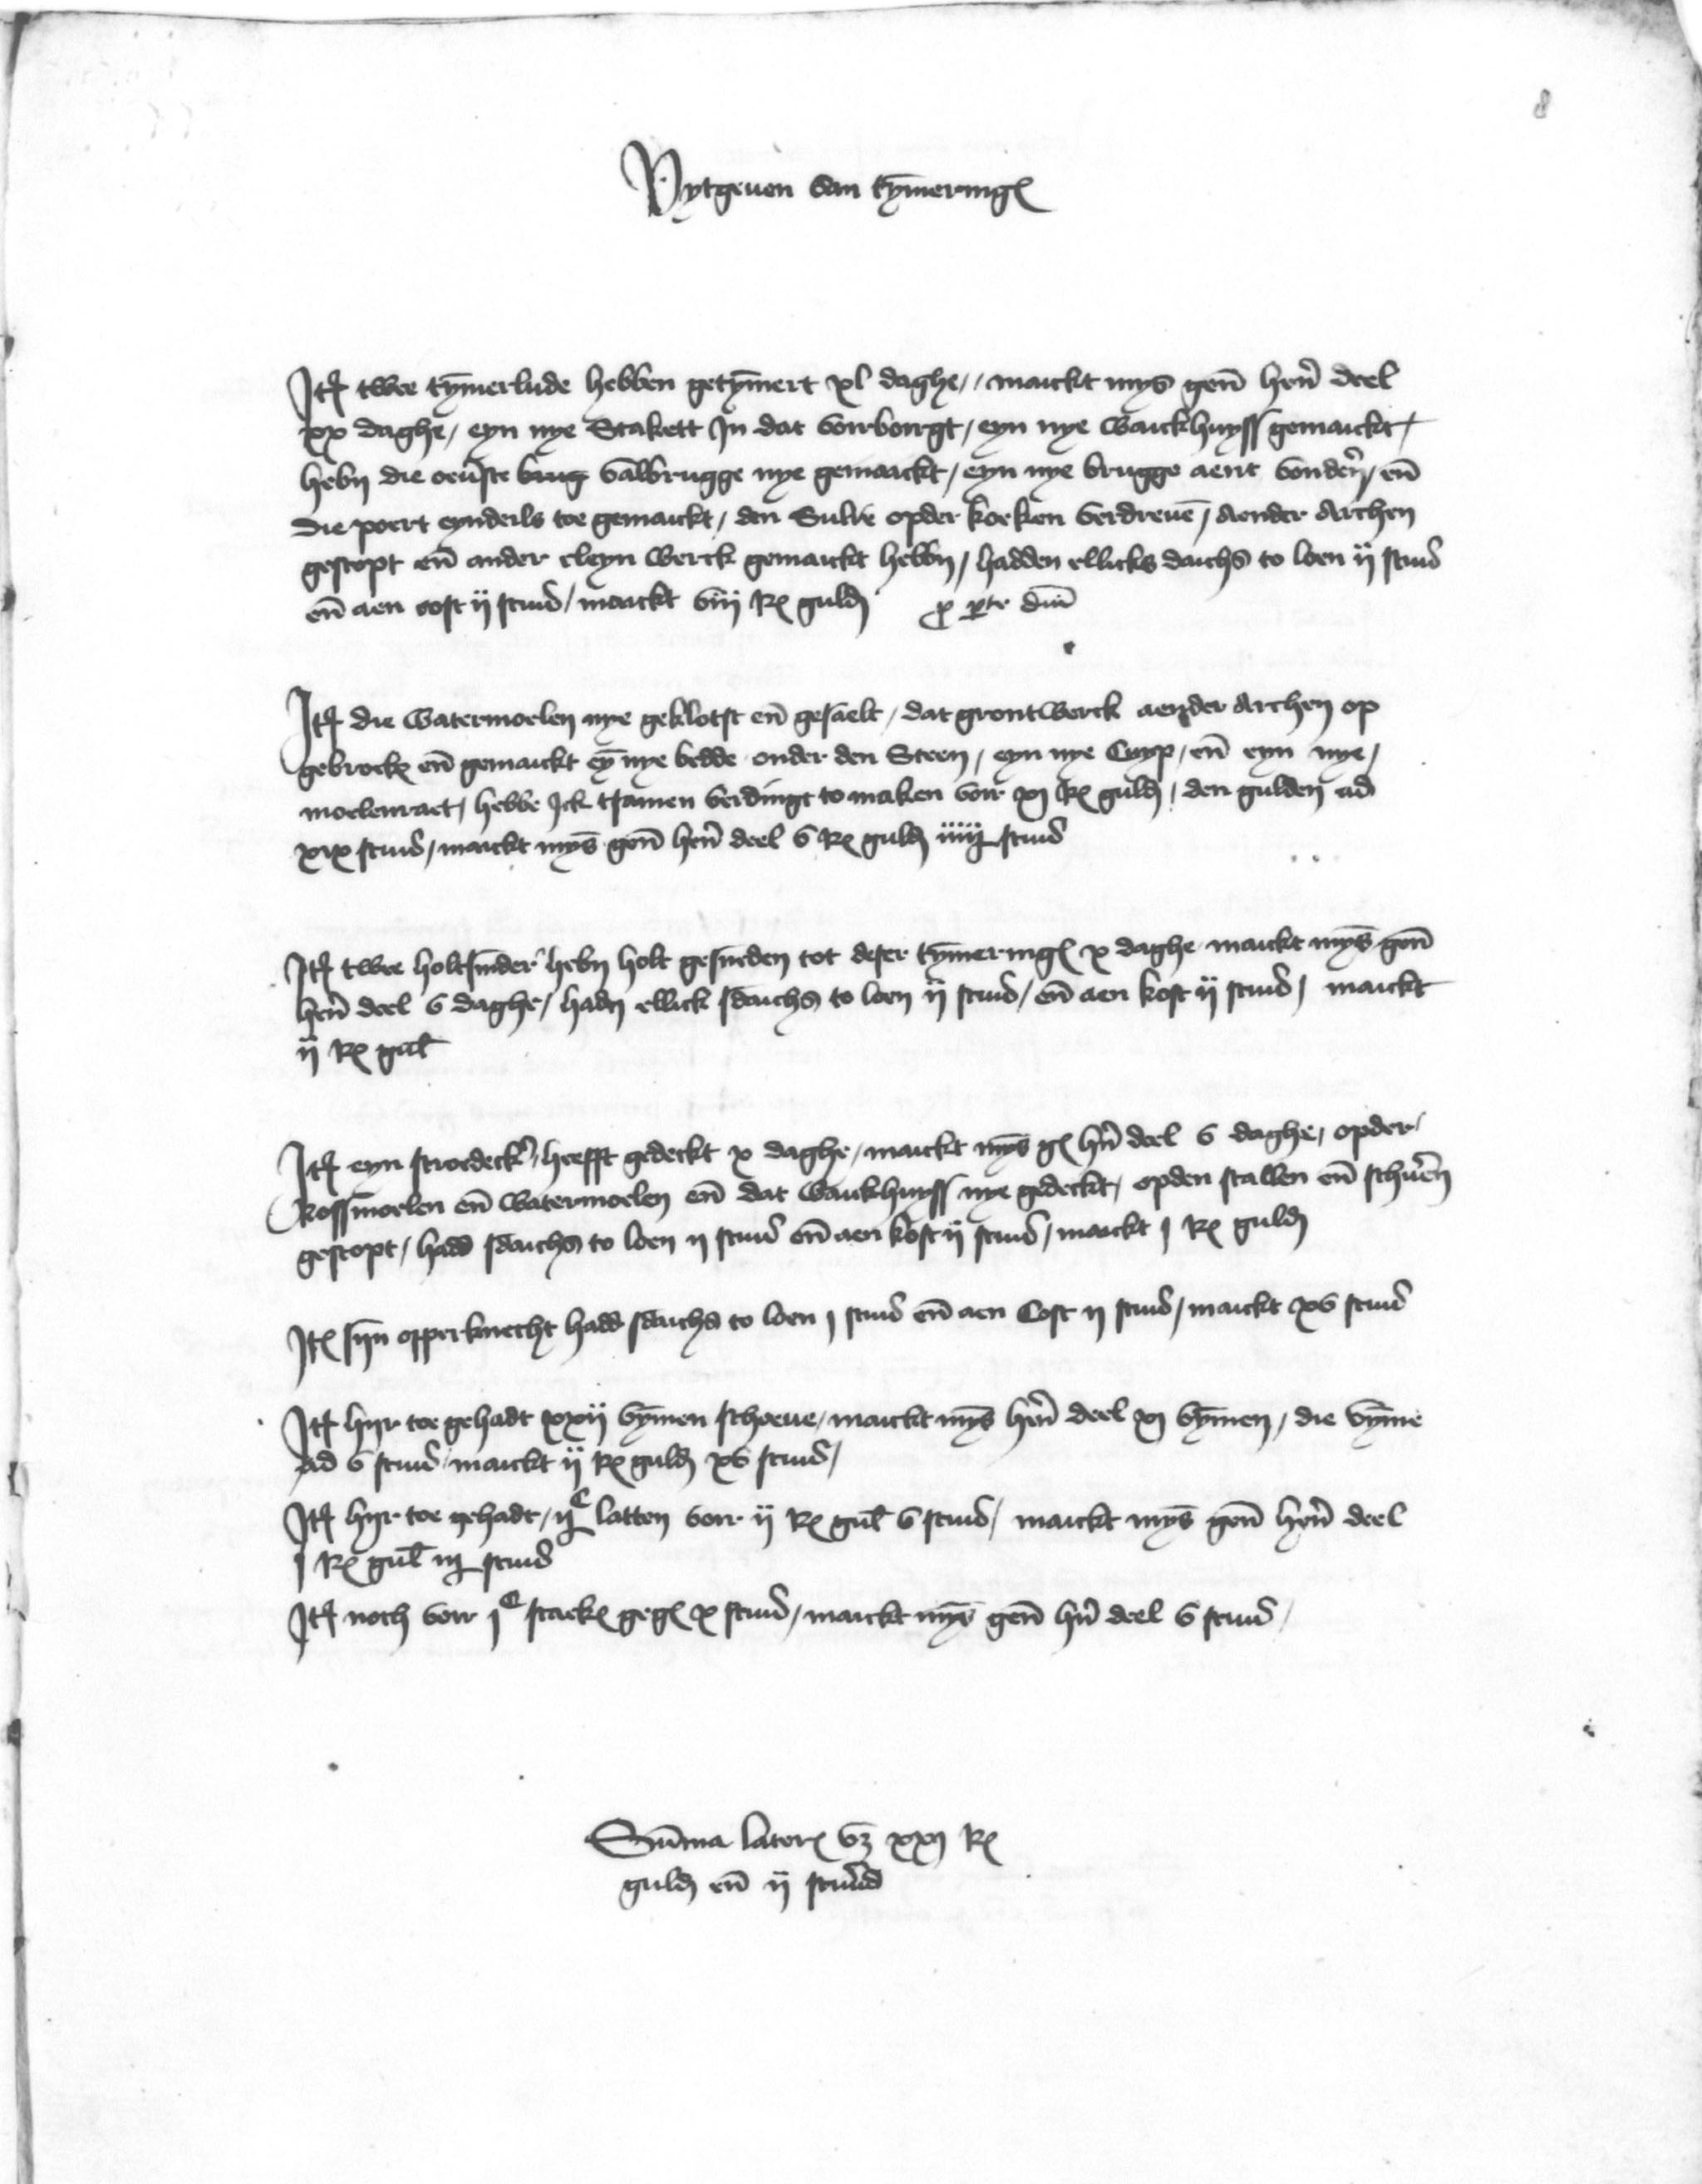 8
Vytgeuen van tymering
Itē twee tȳmerlude hebben getȳmert xl daghe // maickt mys gen̄ hern̄ deel
xx daghe / eyn nye Stakett In dat vorborgt / eyn nye waickhuyss gemaickt /
hebn die oeuste brug valbrugge nye gemaickt / eyn nye brugge aent vonder / en̄
die poert eynderls toe gemaickt / den Sulre opder koeken verdreuē / aender archen
gestopt en̄ ander cleyn werck gemaickt hebbn / hadden ellicks daichs to loen ij stuud
en̄ aen cost ij stuud / maickt viij R guld p pte dn̄i
Itē die watermoelen nye geklotst en̄ gesaelt / dat grontwerck aender archen op
gebrocken en̄ gemaickt eȳ nye bedde onder den Steen / eyn nye Cuyp / en̄ eyn nye /
moelenraet / hebbe Ick tsamen verdingt to maken voir xj R guld / den gulden ad
xix stuud / maickt mys gen̄ hern̄ deel v R guld iiij½ stuud
Itē twee holtsnider hebn holt gesneden tot deser tȳmering x daghe maickt mys gen̄
hern̄ deel v daghe / hadn ellick sdaichs to loen ij stuud / en̄ aen kost ij stuud / maickt
ij R gul̄
Itē eyn stroedecker heefft gedeckt x daghe / maickt mys g hn̄ deel v daghe / opder /
Rossmoelen en̄ watermoelen en̄ dat waickhuyss nye gedeckt / opden stallen en̄ schuern̄
gestopt / hadd sdaichs to loen ij stuud en̄ aen kost ij stuud / maickt j R guld
Itē sijn opperknecht hadd sdaichs to loen j stuud en̄ aen Cost ij stuud / maickt xv stuud
Itē hijr toe gehadt xxij vȳmen schoeue / maickt mys hern̄ deel xj vȳmen / die vȳme
ad v stuud / maickt ij R guld xv stuud /
Itē hijr toe gehadt / ij½ C latten voir ij R gul̄ v stuud / maickt mys gen̄ hern̄ deel
j R gul̄ ij½ stuud
Itē noch voir j C stacken geg x stuud / maickt mys gen̄ hn̄ deel v stuud /
Sum̄a lateris vz xxj R
guld en̄ ij stuuerd